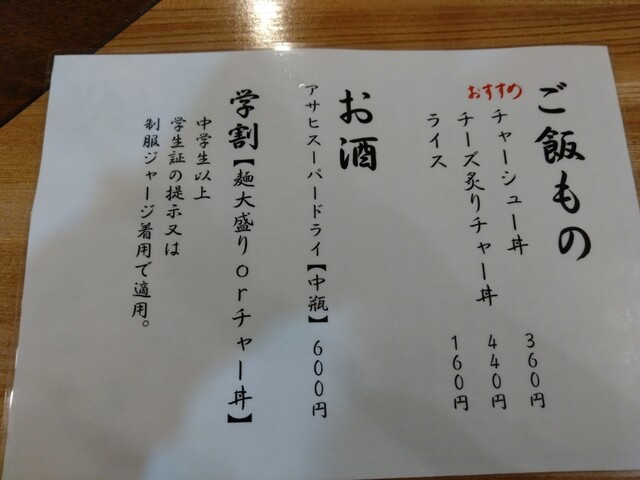 ご飯もの
おすすめ
チャーシュー丼 360円
チーズ炙りチャー丼 440円
ライス 160円
お酒
アサヒスーパードライ【中瓶】 600円
学割【麺大盛りorチャー丼】
中学生以上
学生証の提示又は
制服ジャージ着用で適用。